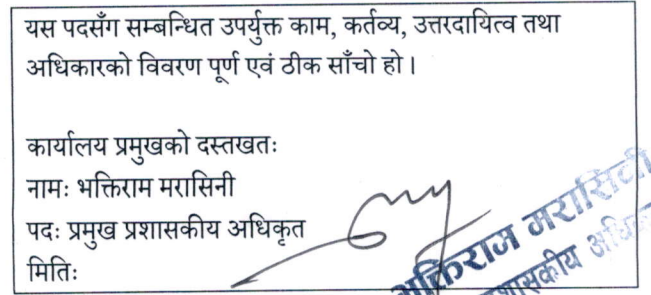 यस पदसँग सम्बन्धित उपर्युक्त काम, कर्तव्य, उत्तरदायित्व तथा
अधिकारको विवरण पूर्ण एवं ठीक साँचो हो।
कार्यालय प्रमुखको दस्तखतः
नामः भक्तिराम मरासिनी
पदः प्रमुख प्रशासकीय अधिकृत
मितिः